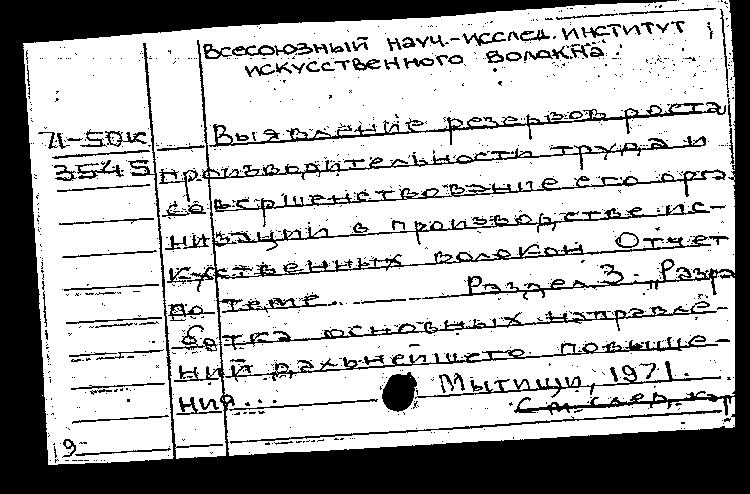 Всесоюзный науч.-исслед. институт
искусственного волокна.
Выявление резервов роста
71-50к
3545
производительности труда и
совершенствование его орга-
низации в производстве ис-
кусственных волокон. Отчет
по теме. Раздел 3. „Разра
ботка основных направле-
ний дальнейшего повыше-
ния... Мытищи, 1971.
См. след. кар
9-